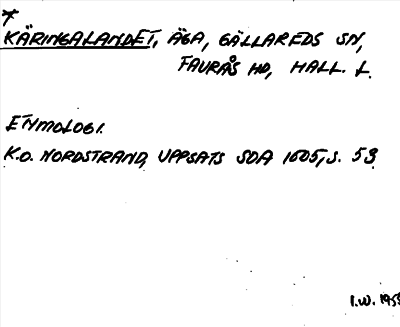 *
KÄRINGALANDET, ÄGA, GÄLLAREDS SN,
FAURÅS HD, HALL. L.
ETYMOLOGI.
K.O. NORDSTRAND, UPPSATS SOA 1605, S. 59.
I.W. 195